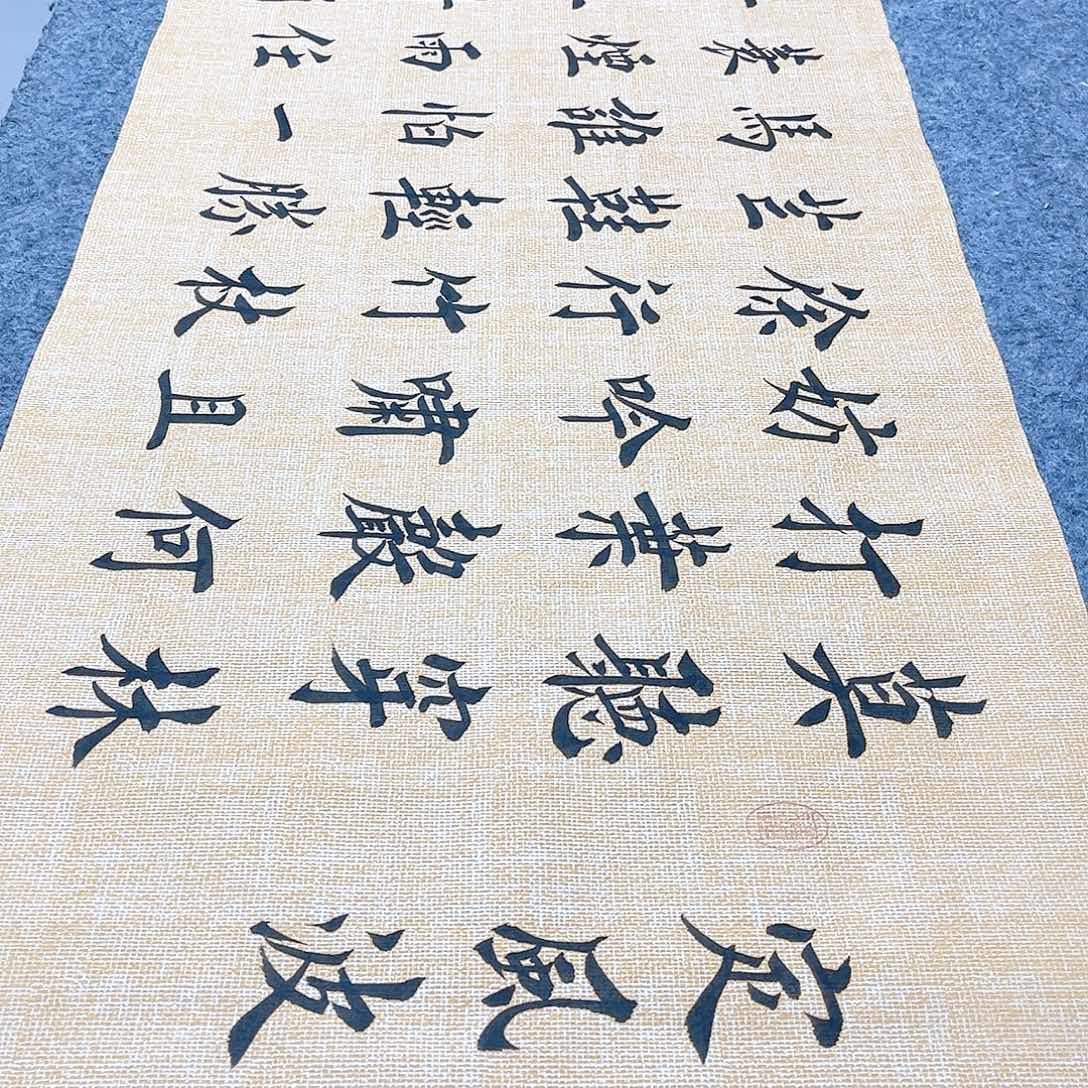 定風波
莫聽穿林
打葉聲何
妨吟嘯且
徐行竹杖
芒鞋輕勝
馬誰怕一
蓑煙雨任